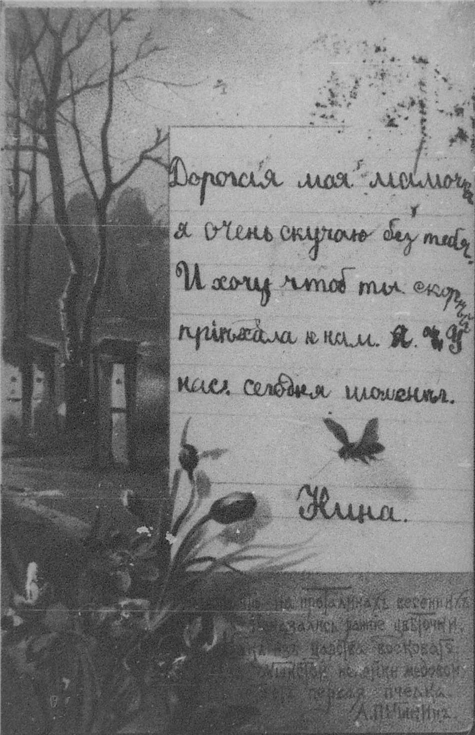 Дорогая моя мамочка
я очень скучаю без тебя.
И хочу чтоб ты скорѣй
пріѣхала к нам. А. у
нас. сегодня
Нина.
на проталинахъ весеннихъ
показались ранніе цвѣточки,
изъ царства восковаго,
изъ келейки медовой
первая пчелка.
А. Пушкинъ.